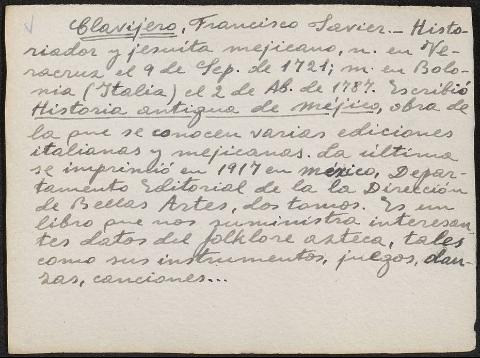 Clavijero, Francisco Javier.- Histo-
riador y jesuita mejicano, n. en Ve-
racruz el 9 de Sep. de 1721; m. en Bolo-
nia (Italia) el 2 de Ab. de 1787. Escribió
Historia antigua de Méjico, obra de
la que se conocen varias ediciones
italianas y mejicanas. La última
se imprimió en 1917 en México, Depar-
tamento Editorial de la la Dirección
de Bellas Artes, dos tomos. Es un
libro que nos suministra interesan-
tes datos del folklore azteca, tales
como sus instrumentos, juegos, dan-
zas, canciones...